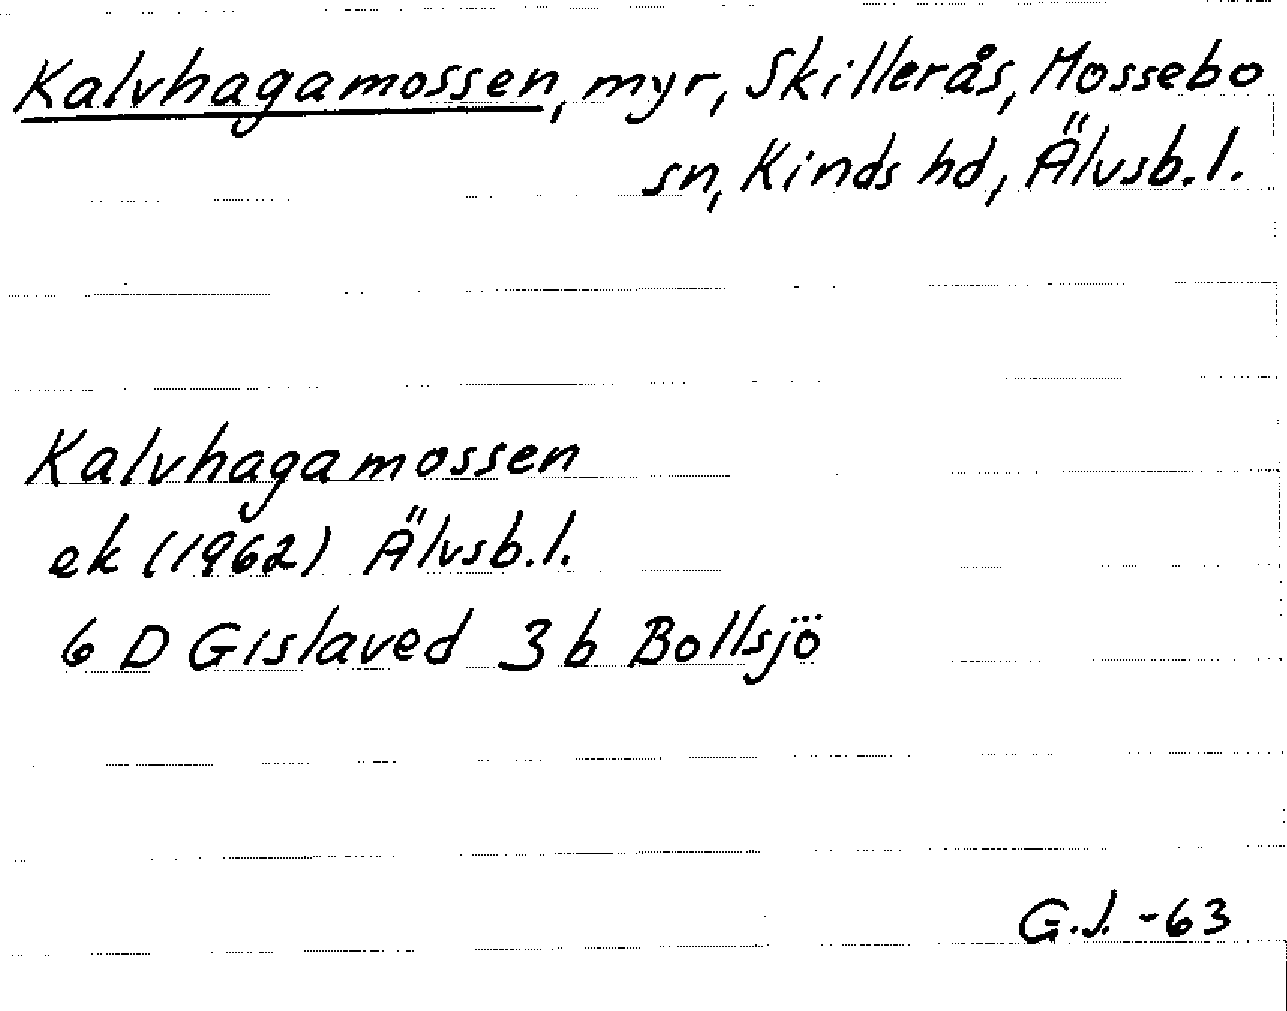 Kalvhagamossen, myr, Skillerås, Mossebo
sn, Kinds hd, Älvsb.l.
Kalvhagamossen
ek (1962) Älvsb.l.
6 D Gislaved 3 b Bollsjö
G.J. -63